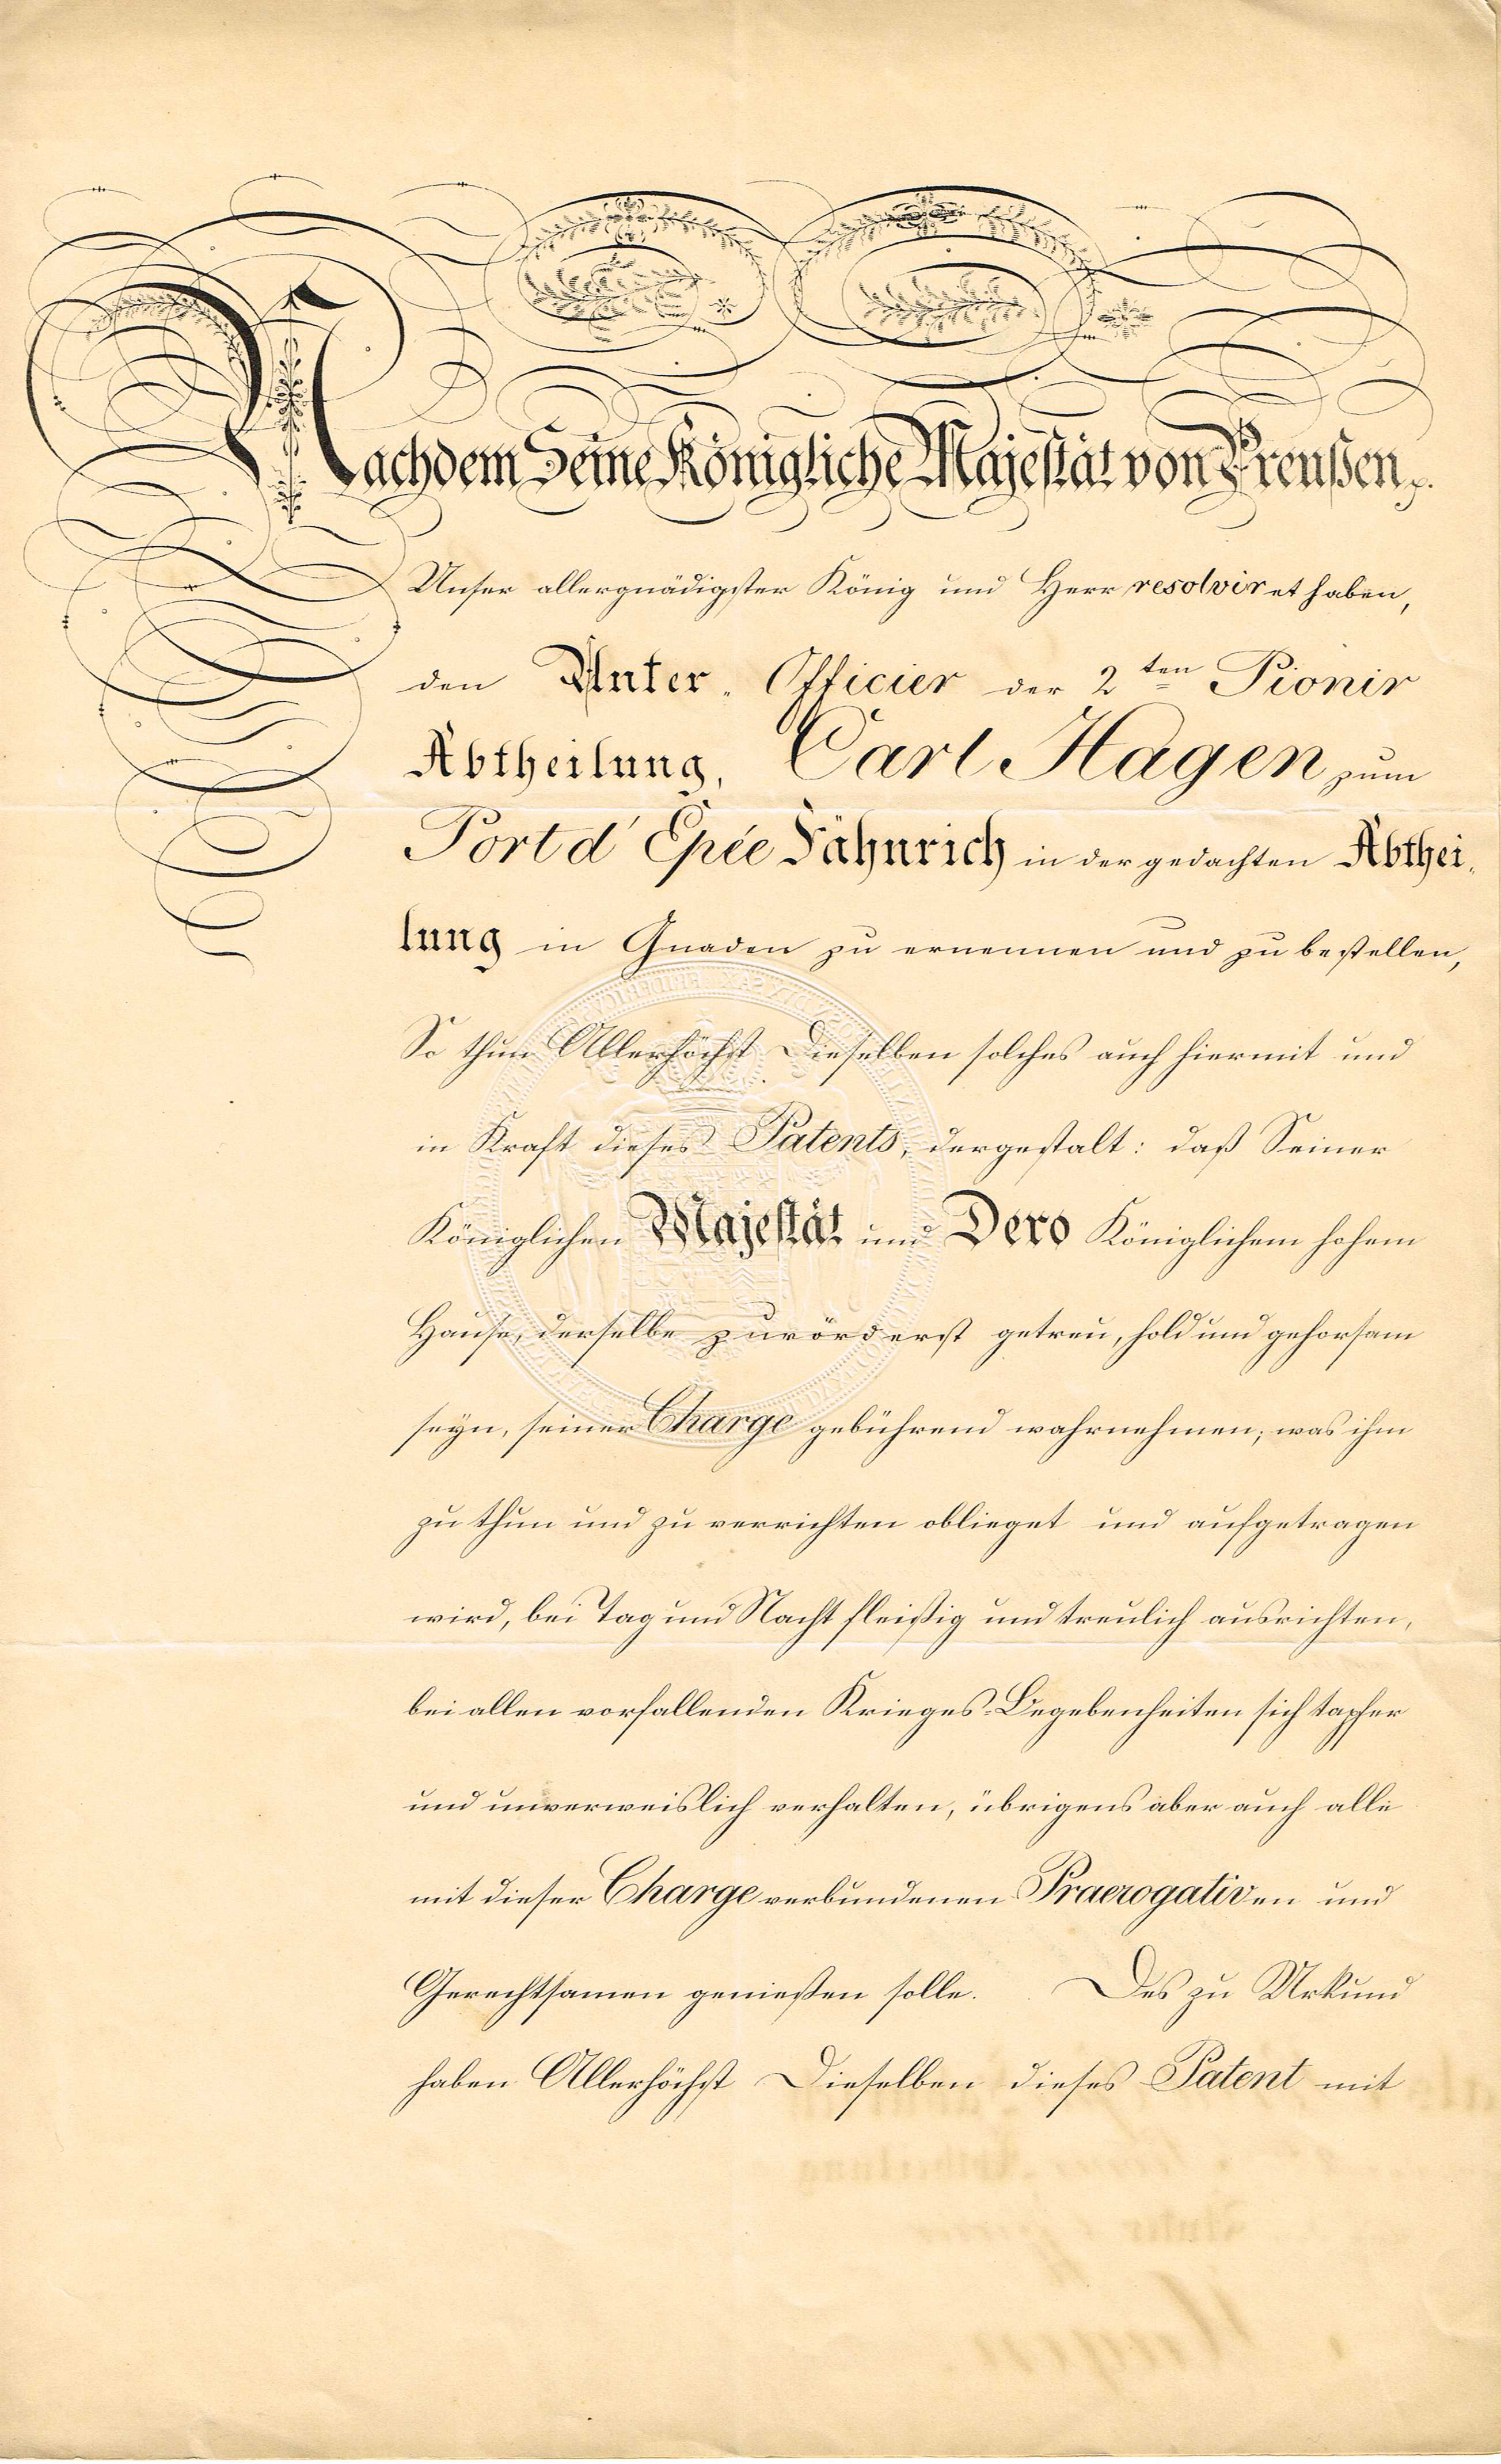 Nachdem Seine Königliche Majestät von Preußen p.
Unser allergnädigster König und Herr resolviret haben,
den Unter-Officier der 2ten Pionir
Abtheilung, Carl Hagen zum
Port d'Epée Fähnrich in der gedachten Abthei-
lung in Gnaden zu ernennen und zu bestellen,
So thun Allerhöchst Dieselben solches auch hiermit und
in Kraft dieses Patents, dergestalt: daß Seiner
Königlichen Majestät und Dero Königlichem hohem
Hause, derselbe zuvörderst getreu, hold und gehorsam
seyn, seiner Charge gebührend wahrnehmen; was ihm
zu thun und zu verrichten oblieget und aufgetragen
wird, bei Tag und Nacht fleißig und treulich ausrichten,
bei allen vorfallenden Krieges-Begebenheiten sich tapfer
und unverweislich verhalten, übrigens aber auch alle
mit dieser Charge verbundenen Praerogativen und
Gerechtsamen genießen solle. Des zu Urkund
haben Allerhöchst Dieselben dieses Patent mit